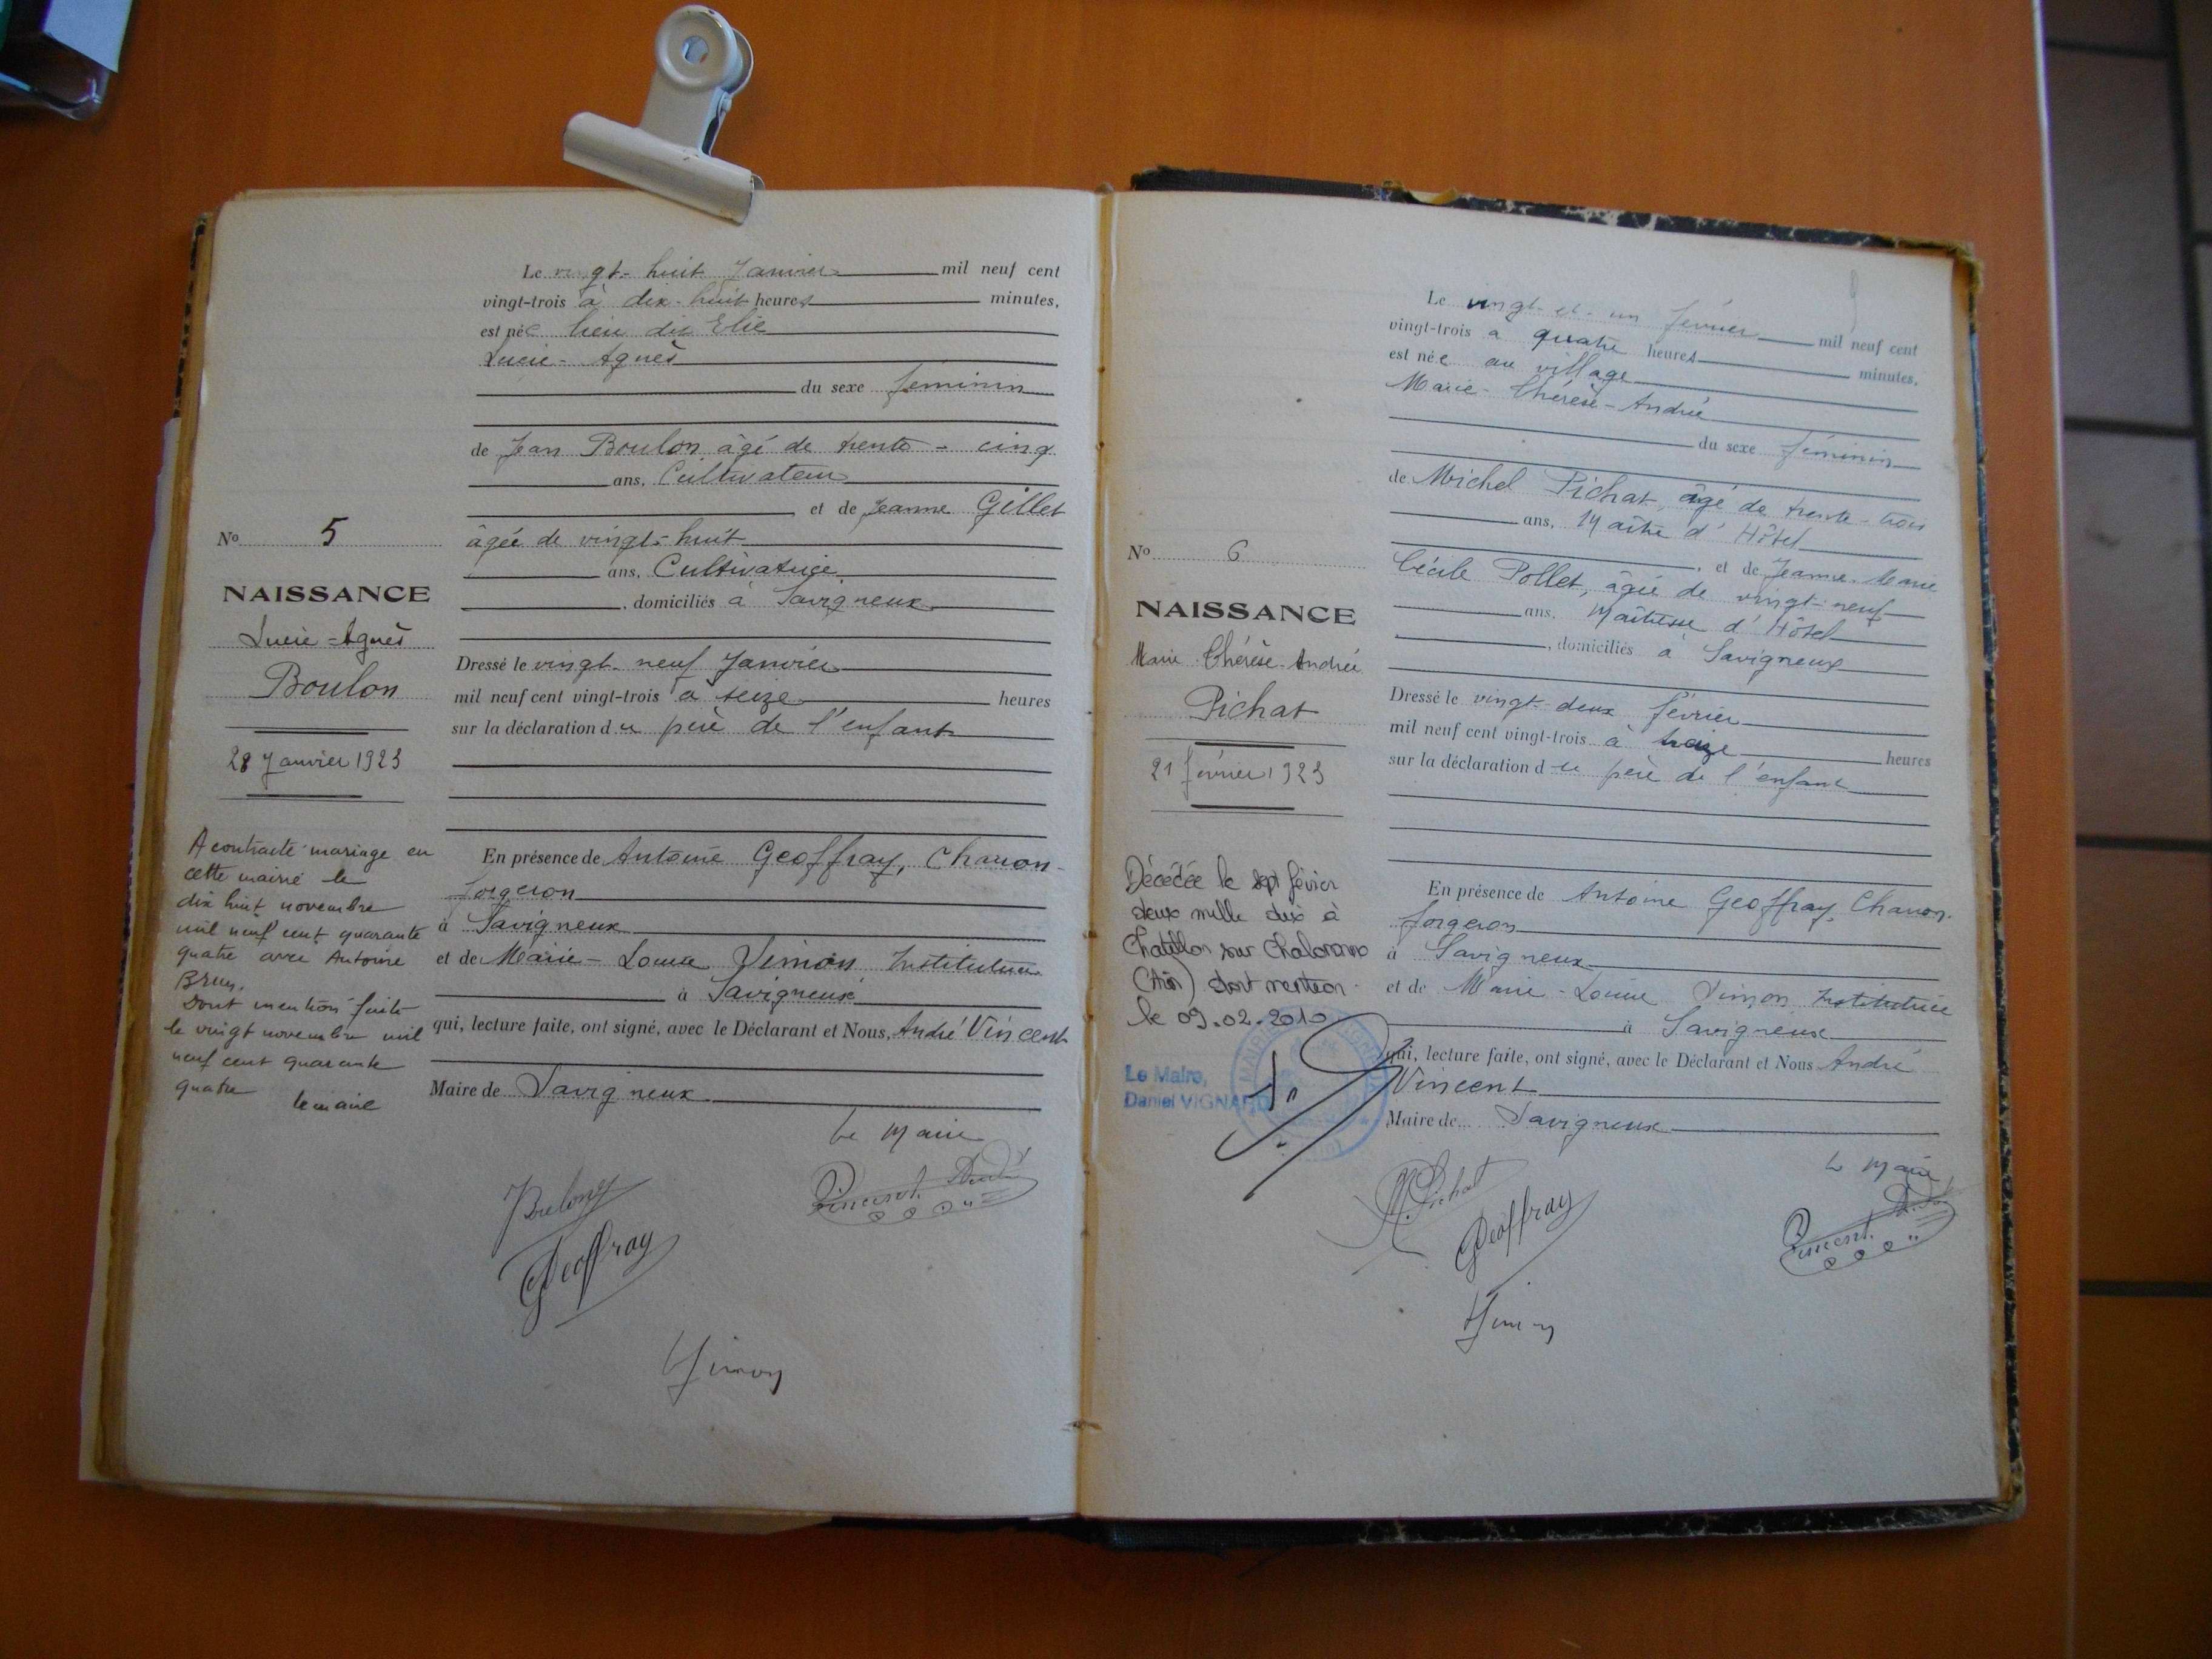 Le vingt-huit Janvier mil neuf cent
vingt-trois à dix-huit heures minutes,
est née lieu dit Elie
Lucie-Agnès
du sexe féminin
de Jean Boulon âgé de trente-cinq
ans, Cultivateur
et de Jeanne Gillet
âgée de vingt-huit
ans, Cultivatrice
, domiciliés à Savigneux
Dressé le vingt-neuf Janvier
mil neuf cent vingt-trois à seize heures
sur la déclaration du père de l'enfant
En présence de Antoine Geoffray, Charron-
forgeron
à Savigneux
et de Marie-Louise Simon Institutrice
à Savigneux
qui, lecture faite, ont signé, avec le Déclarant et Nous, André Vincent
Maire de Savigneux
Le Maire
Boulon
Vincent André
Geoffray
Simon
No 5
NAISSANCE
Lucie-Agnès
Boulon
28 Janvier 1923
A contracté mariage en
cette mairie le
dix huit novembre
mil neuf cent quarante
quatre avec Antoine
Brun.
Dont mention faite
le vingt novembre mil
neuf cent quarante
quatre
le maire
Le vingt-et-un février mil neuf cent
vingt-trois à quatre heures minutes,
est née au village
Marie-Thérèse-André
du sexe féminin
de Michel Pichat, âgé de trente-trois
ans, Maître d'Hôtel
, et de Jeanne-Marie
Cécile Pollet, âgée de vingt-neuf
ans, Maîtresse d'Hôtel
, domiciliés à Savigneux
Dressé le vingt-deux février
mil neuf cent vingt-trois à treize heures
sur la déclaration du père de l'enfant
En présence de Antoine Geoffray, Charron-
forgeron
à Savigneux
et de Marie-Louise Simon Institutrice
à Savigneux
qui, lecture faite, ont signé, avec le Déclarant et Nous André
Vincent
Maire de Savigneux
Le Maire
M. Pichat
Geoffray
Vincent
Simon
No 6
NAISSANCE
Marie Thérèse-Andrée
Pichat
21 février 1923
Décédée le sept février
deux mille dix à
Chatillon sur Chalaronne
(Ain) dont mention
le 09.02.2010
Le Maire,
Daniel VIGNARD